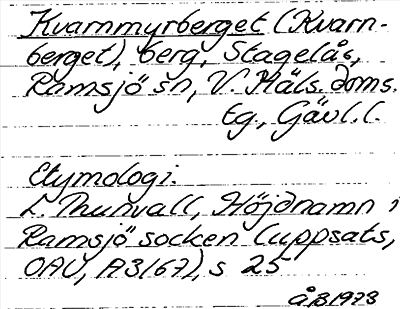 Kvarnmyrberget (Kvarn-
berget), berg, Stagelås,
Ramsjö sn, V. Häls. doms.
tg., Gävl. l.
Etymologi.
L. Thunvall, Höjdnamn i
Ramsjö socken (uppsats,
OAU, A3167), s 25
ÅB 1973